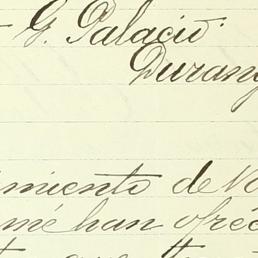 G. Palacio.
Durang
miento de Vo
me han ofréc